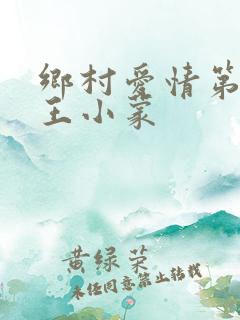 鄉村愛情第
王小蒙
黄绿荣
未经同意禁止转载